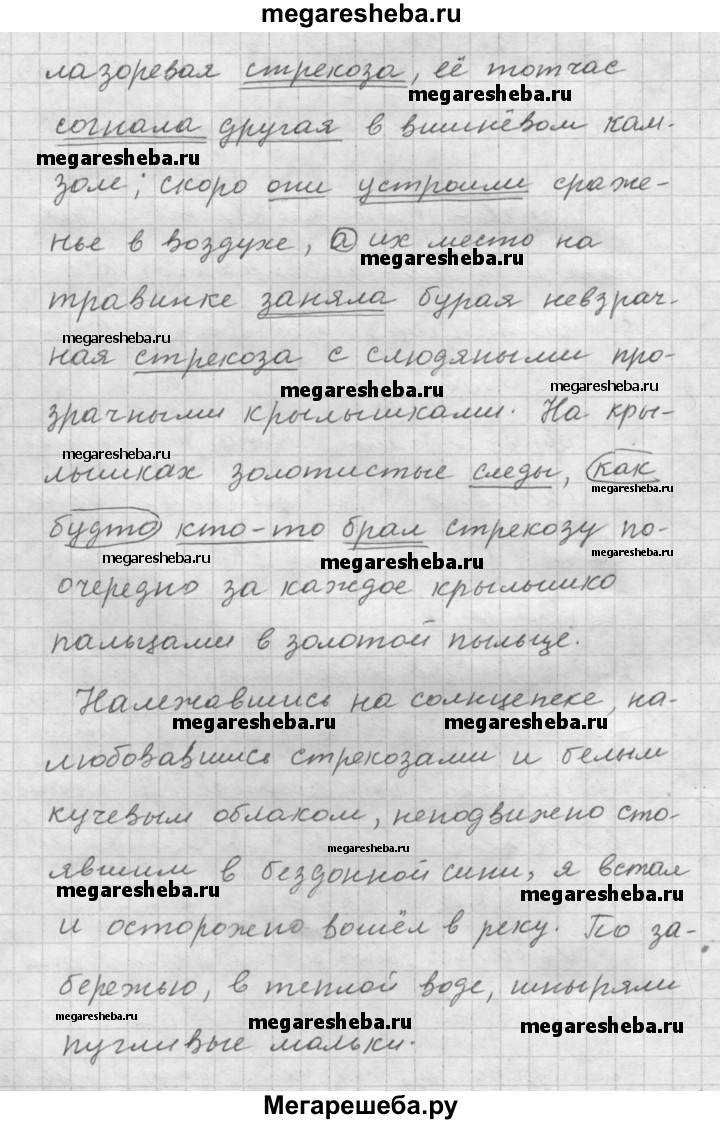 megaresheba.ru
лазоревая стрекоза, её тотчас
megaresheba.ru
согнала другая в вишнёвом кам-
megaresheba.ru
золе; скоро они устроили сраже-
нье в воздухе, а их место на
megaresheba.ru
травинке заняла бурая невзрач-
megaresheba.ru
ная стрекоза с слюдяными про-
megaresheba.ru megaresheba.ru
зрачными крылышками. На кры-
megaresheba.ru
лышках золотистые следы, как
megaresheba.ru
будто кто-то брал стрекозу по-
megaresheba.ru megaresheba.ru megaresheba.ru
очередно за каждое крылышко
пальцами в золотой пыльце.
Належавшись на солнцепеке, на-
megaresheba.ru megaresheba.ru
любовавшись стрекозами и белым
кучевым облаком, неподвижно сто-
megaresheba.ru
явшим в бездонной сини, я встал
megaresheba.ru megaresheba.ru
и осторожно вошёл в реку. По за-
бережью, в теплой воде, шныряли
megaresheba.ru megaresheba.ru megaresheba.ru
пугливые мальки.
Мегарешеба.ру